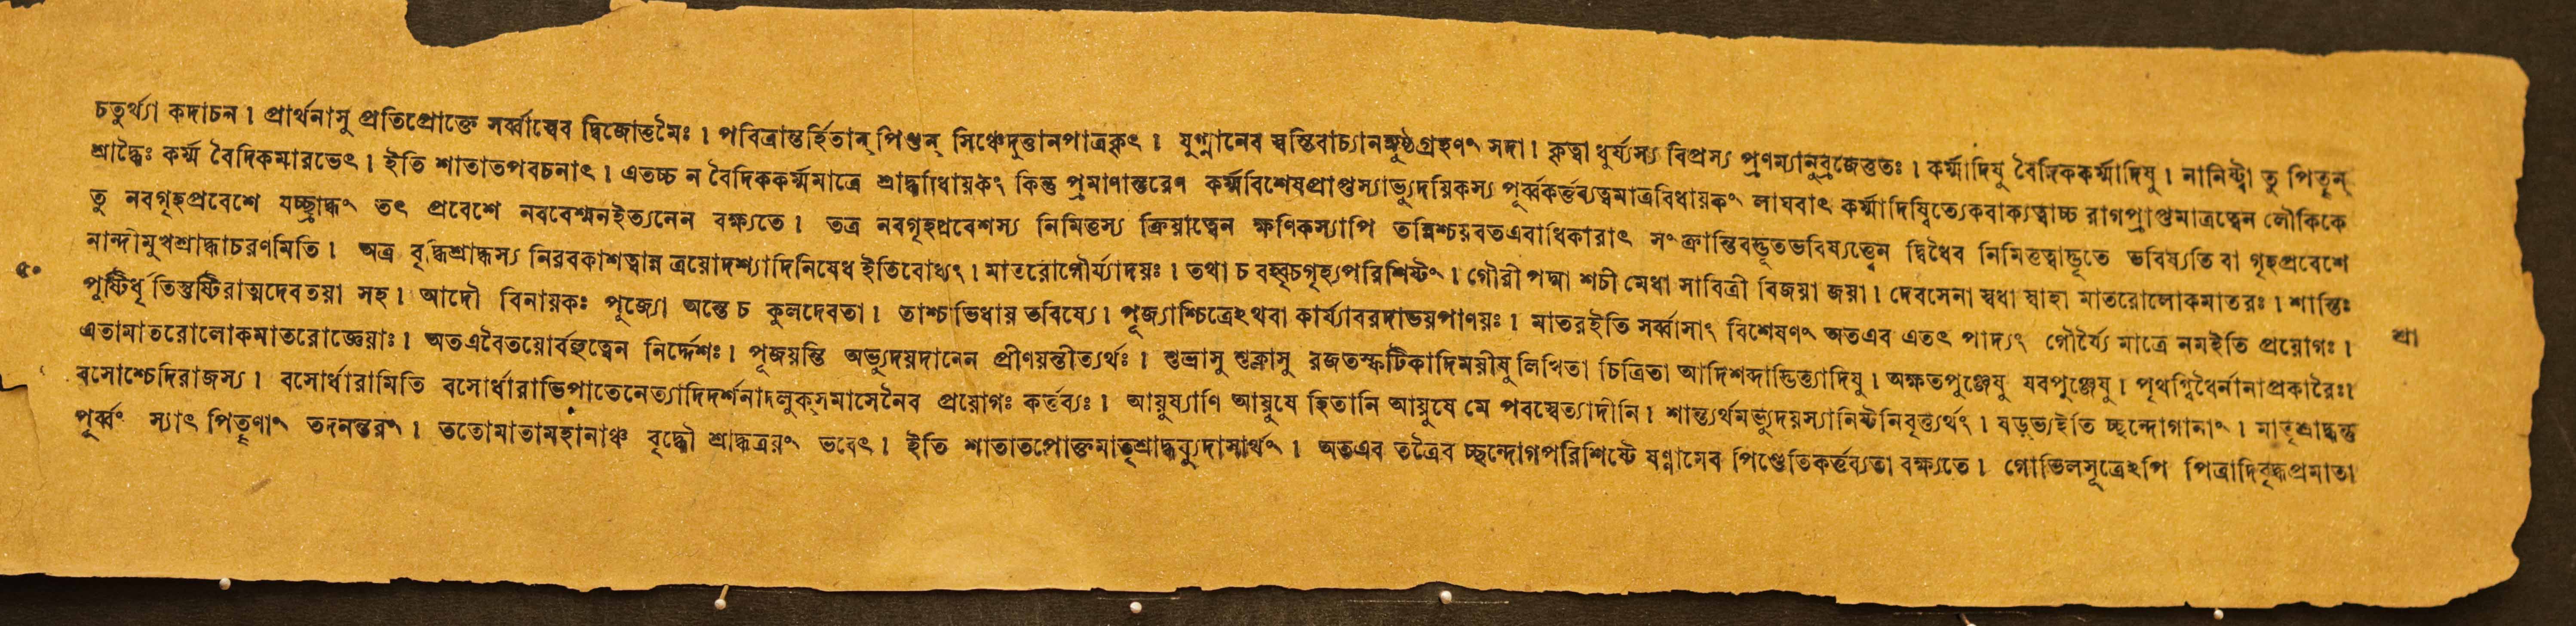 চতুর্থ্যা কদাচন । প্রার্থনাসু প্রতিপ্রোক্তে সর্ব্বাস্বেব দ্বিজোত্তমৈঃ । পবিত্রান্তর্হিতান্ পিণ্ডান্ সিঞ্চেদুত্তানপাত্রকৃৎ । যুগ্মানেব স্বস্তিবাচ্যানঙ্গুষ্ঠগ্রহণং সদা । কৃত্বা ধুর্য্যস্য বিপ্রস্য প্রণম্যানুব্রজেত্ততঃ । কর্ম্মাদিষু বৈদিককর্ম্মাদিষু । নানিষ্ট্বা তু পিতৄন্
শ্রাদ্ধৈঃ কর্ম্ম বৈদিকমারভেৎ । ইতি শাতাতপবচনাৎ । এতচ্চ ন বৈদিককর্ম্মমাত্রে শ্রাদ্ধবিধায়কং কিন্তু প্রমাণান্তরেণ কর্ম্মবিশেষপ্রাপ্তস্যাভ্যুদয়িকস্য পূর্ব্বকর্ত্তব্যত্বমাত্রবিধায়কং লাঘবাৎ কর্ম্মাদিষ্বিত্যেকবাক্যত্বাচ্চ রাগপ্রাপ্তমাত্রত্বেন লৌকিকে
তু নবগৃহপ্রবেশে যচ্ছ্রাদ্ধং তৎ প্রবেশে নববেশ্মনইত্যনেন বক্ষ্যতে । তত্র নবগৃহপ্রবেশস্য নিমিত্তস্য ক্রিয়াত্বেন ক্ষণিকস্যাপি তন্নিশ্চয়বতএবাধিকারাৎ সংক্রান্তিবদ্ভূতভবিষ্যত্ত্বেন দ্বিধৈব নিমিত্তত্বাদ্ভূতে ভবিষ্যতি বা গৃহপ্রবেশে
নান্দীমুখশ্রাদ্ধাচরণমিতি । অত্র বৃদ্ধিশ্রাদ্ধস্য নিরবকাশত্বান্ন ত্রয়োদশ্যাদিনিষেধ ইতিবোধ্যং । মাতরোগৌর্য্যাদয়ঃ । তথা চ বহ্বৃচগৃহ্যপরিশিষ্টং । গৌরী পদ্মা শচী মেধা সাবিত্রী বিজয়া জয়া । দেবসেনা স্বধা স্বাহা মাতরোলোকমাতরঃ । শান্তিঃ
৫০ পুষ্টির্ধৃতিস্তুষ্টিরাত্মদেবতয়া সহ । আদৌ বিনায়কঃ পূজ্যো অন্তে চ কুলদেবতা । তাশ্চাভিধায় ভবিষ্যে । পূজ্যাশ্চিত্রেঽথবা কার্য্যাবরদাভয়পাণয়ঃ । মাতরইতি সর্ব্বাসাং বিশেষণং অতএব এতৎ পাদ্যং গৌর্য্যৈ মাত্রে নমইতি প্রয়োগঃ । শ্রা
এতামাতরোলোকমাতরোজ্ঞেয়াঃ । অতএবৈতয়োর্বহুত্বেন নির্দ্দেশঃ । পূজয়ন্তি অভ্যুদয়দানেন প্রীণয়ন্তীত্যর্থঃ । শুভ্রাসু শুক্লাসু রজতস্ফটিকাদিময়ীষু লিখিতা চিত্রিতা আদিশব্দাদ্ভিত্ত্যাদিষু । অক্ষতপুঞ্জেষু যবপুঞ্জেষু । পৃথগ্বিধৈর্নানাপ্রকারৈঃ।
বসোশ্চেদিরাজস্য । বসোর্ধারামিতি বসোর্ধারাভিপাতেনেত্যাদিদর্শনাদলুক্সমাসেনৈব প্রয়োগঃ কর্ত্তব্যঃ । আয়ুষ্যাণি আয়ুষে হিতানি আয়ুষে মে পবস্বেত্যাদীনি । শান্ত্যর্থমভ্যুদয়স্যানিষ্টনিবৃত্ত্যর্থং । ষড়্ভ্যইতি চ্ছন্দোগানাং । মাতৃশ্রাদ্ধন্তু
পূর্ব্বং স্যাৎ পিতৄণাং তদনন্তরং । ততোমাতামহানাঞ্চ বৃদ্ধৌ শ্রাদ্ধত্রয়ং ভবেৎ । ইতি শাতাতপোক্তমাতৃশ্রাদ্ধব্যুদাসার্থং । অতএব তত্রৈব চ্ছন্দোগপরিশিষ্টে ষণ্ণামেব পিণ্ডেতিকর্ত্তব্যতা বক্ষ্যতে । গোভিলসূত্রেঽপি পিত্রাদিবৃদ্ধপ্রমাতা